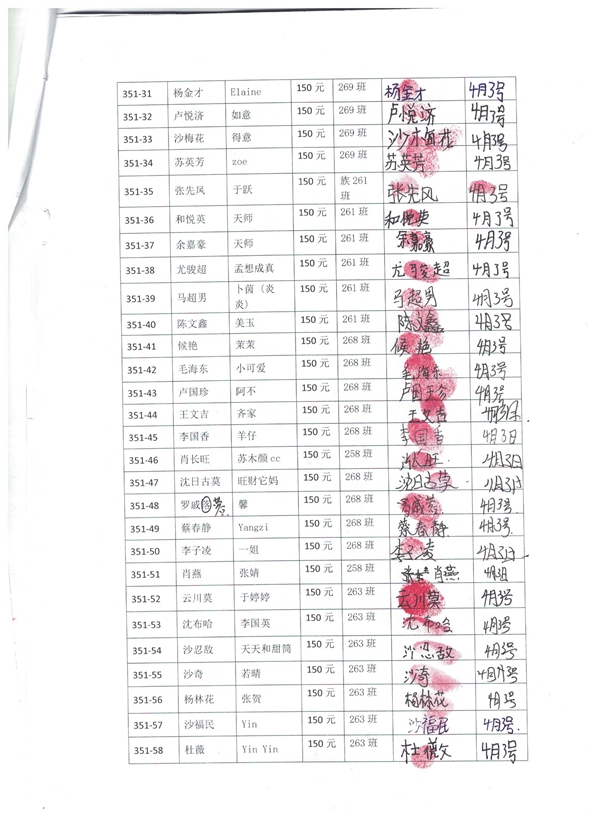 351-31 杨金才 Elaine 150 元 269 班 杨金才 4月3号
351-32 卢悦济 如意 150 元 269 班 卢悦济 4月3号
351-33 沙梅花 得意 150 元 269 班 沙梅花 4月3号
351-34 苏英芳 zoe 150 元 269 班 苏英芳 4月3号
351-35 张先凤 于跃 150 元 族 261 班 张先风 4月3号
351-36 和悦英 天师 150 元 261 班 和悦英 4月3号
351-37 余嘉豪 天师 150 元 261 班 余嘉豪 4月3号
351-38 尤骏超 孟想成真 150 元 261 班 尤骏超 4月3号
351-39 马超男 卜茵（炎炎） 150 元 261 班 马超男 4月3号
351-40 陈文鑫 美玉 150 元 261 班 陈文鑫 4月3号
351-41 候艳 茉茉 150 元 268 班 候艳 4月3号
351-42 毛海东 小可爱 150 元 268 班 毛海东 4月3号
351-43 卢国珍 阿不 150 元 268 班 卢国珍 4月3号
351-44 王文吉 齐家 150 元 268 班 王文吉 4月3日
351-45 李国香 羊仔 150 元 268 班 李国香 4月3日
351-46 肖长旺 苏木颜 cc 150 元 258 班 肖长旺 4月3日
351-47 沈日古莫 旺财它妈 150 元 268 班 沈日古莫 4月3日
351-48 罗威 馨 150 元 268 班 4月3号
351-49 蔡春静 Yangzi 150 元 268 班 蔡春静 4月3号
351-50 李子凌 一姐 150 元 268 班 李子凌 4月3日
351-51 肖燕 张婧 150 元 258 班 肖燕 4月3日
351-52 云川莫 于婷婷 150 元 263 班 云川莫 4月3号
351-53 沈布哈 李国英 150 元 263 班 沈布哈 4月3号
351-54 沙忍敌 天天和甜筒 150 元 263 班 沙忍敌 4月3号
351-55 沙奇 若晴 150 元 263 班 沙奇 4月3号
351-56 杨林花 张贺 150 元 263 班 杨林花 4月3号
351-57 沙福民 Yin 150 元 263 班 沙福民 4月3号
351-58 杜薇 Yin Yin 150 元 263 班 杜薇 4月3号